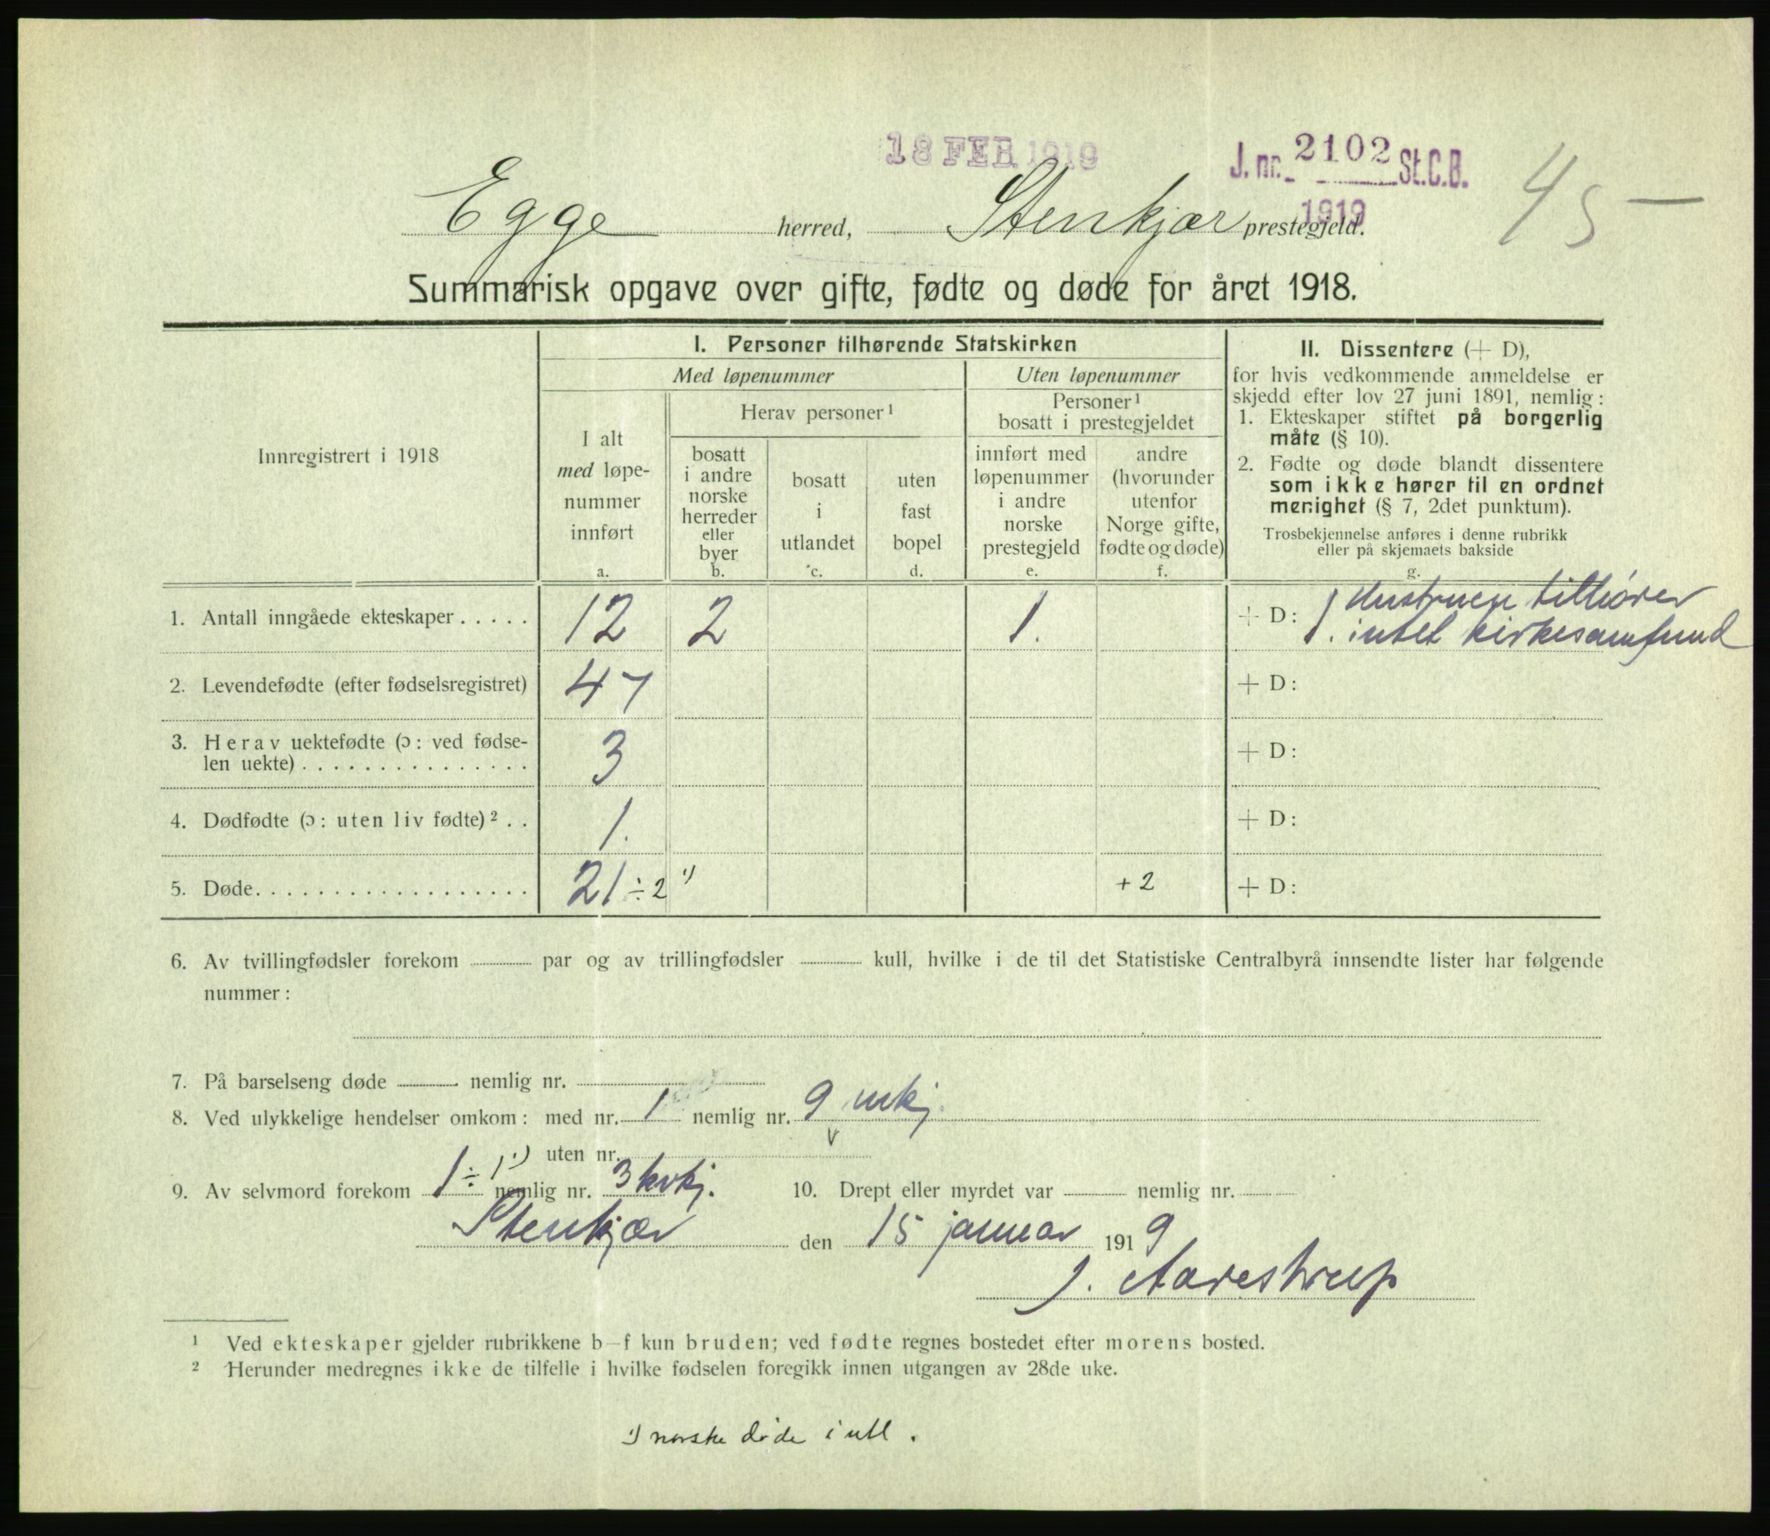 18 FEB 1919
J. nr. 2102 St.C.B.
1919
45 —
Egge herred, Stenkjær prestegjeld.
Summarisk opgave over gifte, fødte og døde for året 1918.
Innregistrert i 1918
I. Personer tilhørende Statskirken
Med løpenummer
Uten løpenummer
I alt
med løpe-
nummer
innført
a.
Herav personer ¹
bosatt
i andre
norske
herreder
eller
byer
b.
bosatt
i
utlandet
c.
uten
fast
bopel
d.
Personer ¹
bosatt i prestegjeldet
innført med
løpenummer
i andre
norske
prestegjeld
e.
andre
(hvorunder
utenfor
Norge gifte,
fødte og døde)
f.
II. Dissentere (+ D),
for hvis vedkommende anmeldelse er
skjedd efter lov 27 juni 1891, nemlig:
1. Ekteskaper stiftet på borgerlig
måte (§ 10).
2. Fødte og døde blandt dissentere
som ikke hører til en ordnet
menighet (§ 7, 2det punktum).
Trosbekjennelse anføres i denne rubrikk
eller på skjemaets bakside
g.
1. Antall inngåede ekteskaper ..... 12 2 1. + D: 1. Hustruen tilhører
intet kirkesamfund
2. Levendefødte (efter fødselsregistret) 47 + D:
3. Herav uektefødte (ɔ: ved fødse-
len uekte) ............... 3 + D:
4. Dødfødte (ɔ: uten liv fødte) ² .. 1. + D:
5. Døde.................. 21 ÷ 2 ¹) + 2 + D:
6. Av tvillingfødsler forekom par og av trillingfødsler kull, hvilke i de til det Statistiske Centralbyrå innsendte lister har følgende
nummer:
7. På barselseng døde nemlig nr.
8. Ved ulykkelige hendelser omkom: med nr. 1 nemlig nr. 9 mkj.
uten nr.
9. Av selvmord forekom 1 ÷ 1 ¹) nemlig nr. 3 kvkj. 10. Drept eller myrdet var nemlig nr.
Stenkjær den 15 januar 1919
J. Aarestrup
¹ Ved ekteskaper gjelder rubrikkene b–f kun bruden; ved fødte regnes bostedet efter morens bosted.
² Herunder medregnes ikke de tilfelle i hvilke fødselen foregikk innen utgangen av 28de uke.
¹) norske døde i utl.